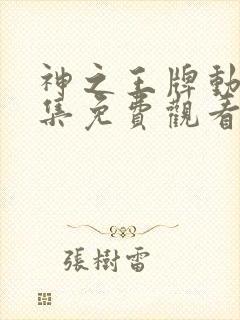 神之王牌動
集免費觀看
張樹雷